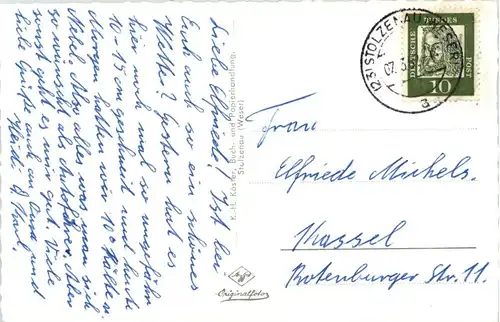 Liebe Elfriede! Ist bei
Euch auch so ein schönes
Wetter? Gestern hat es
hier noch mal so ungefähr
10-15 cm geschneit und heute
Morgen hatten wir 10° Kälte u.
Nebel. Also alles was man sich
so wünscht als Autofahrer. Aber
sonst geht es mir gut. Viele
liebe Grüße auch an Oma und
Heidi
K. H. Köster, Buch- und Papierhandlung,
Stolzenau (Weser)
Agfa
Originalfoto
(23) STOLZENAU (WESER)
a
DEUTSCHE BUNDESPOST
10
Frau
Elfriede Michels.
Kassel
Rotenburger Str. 11.